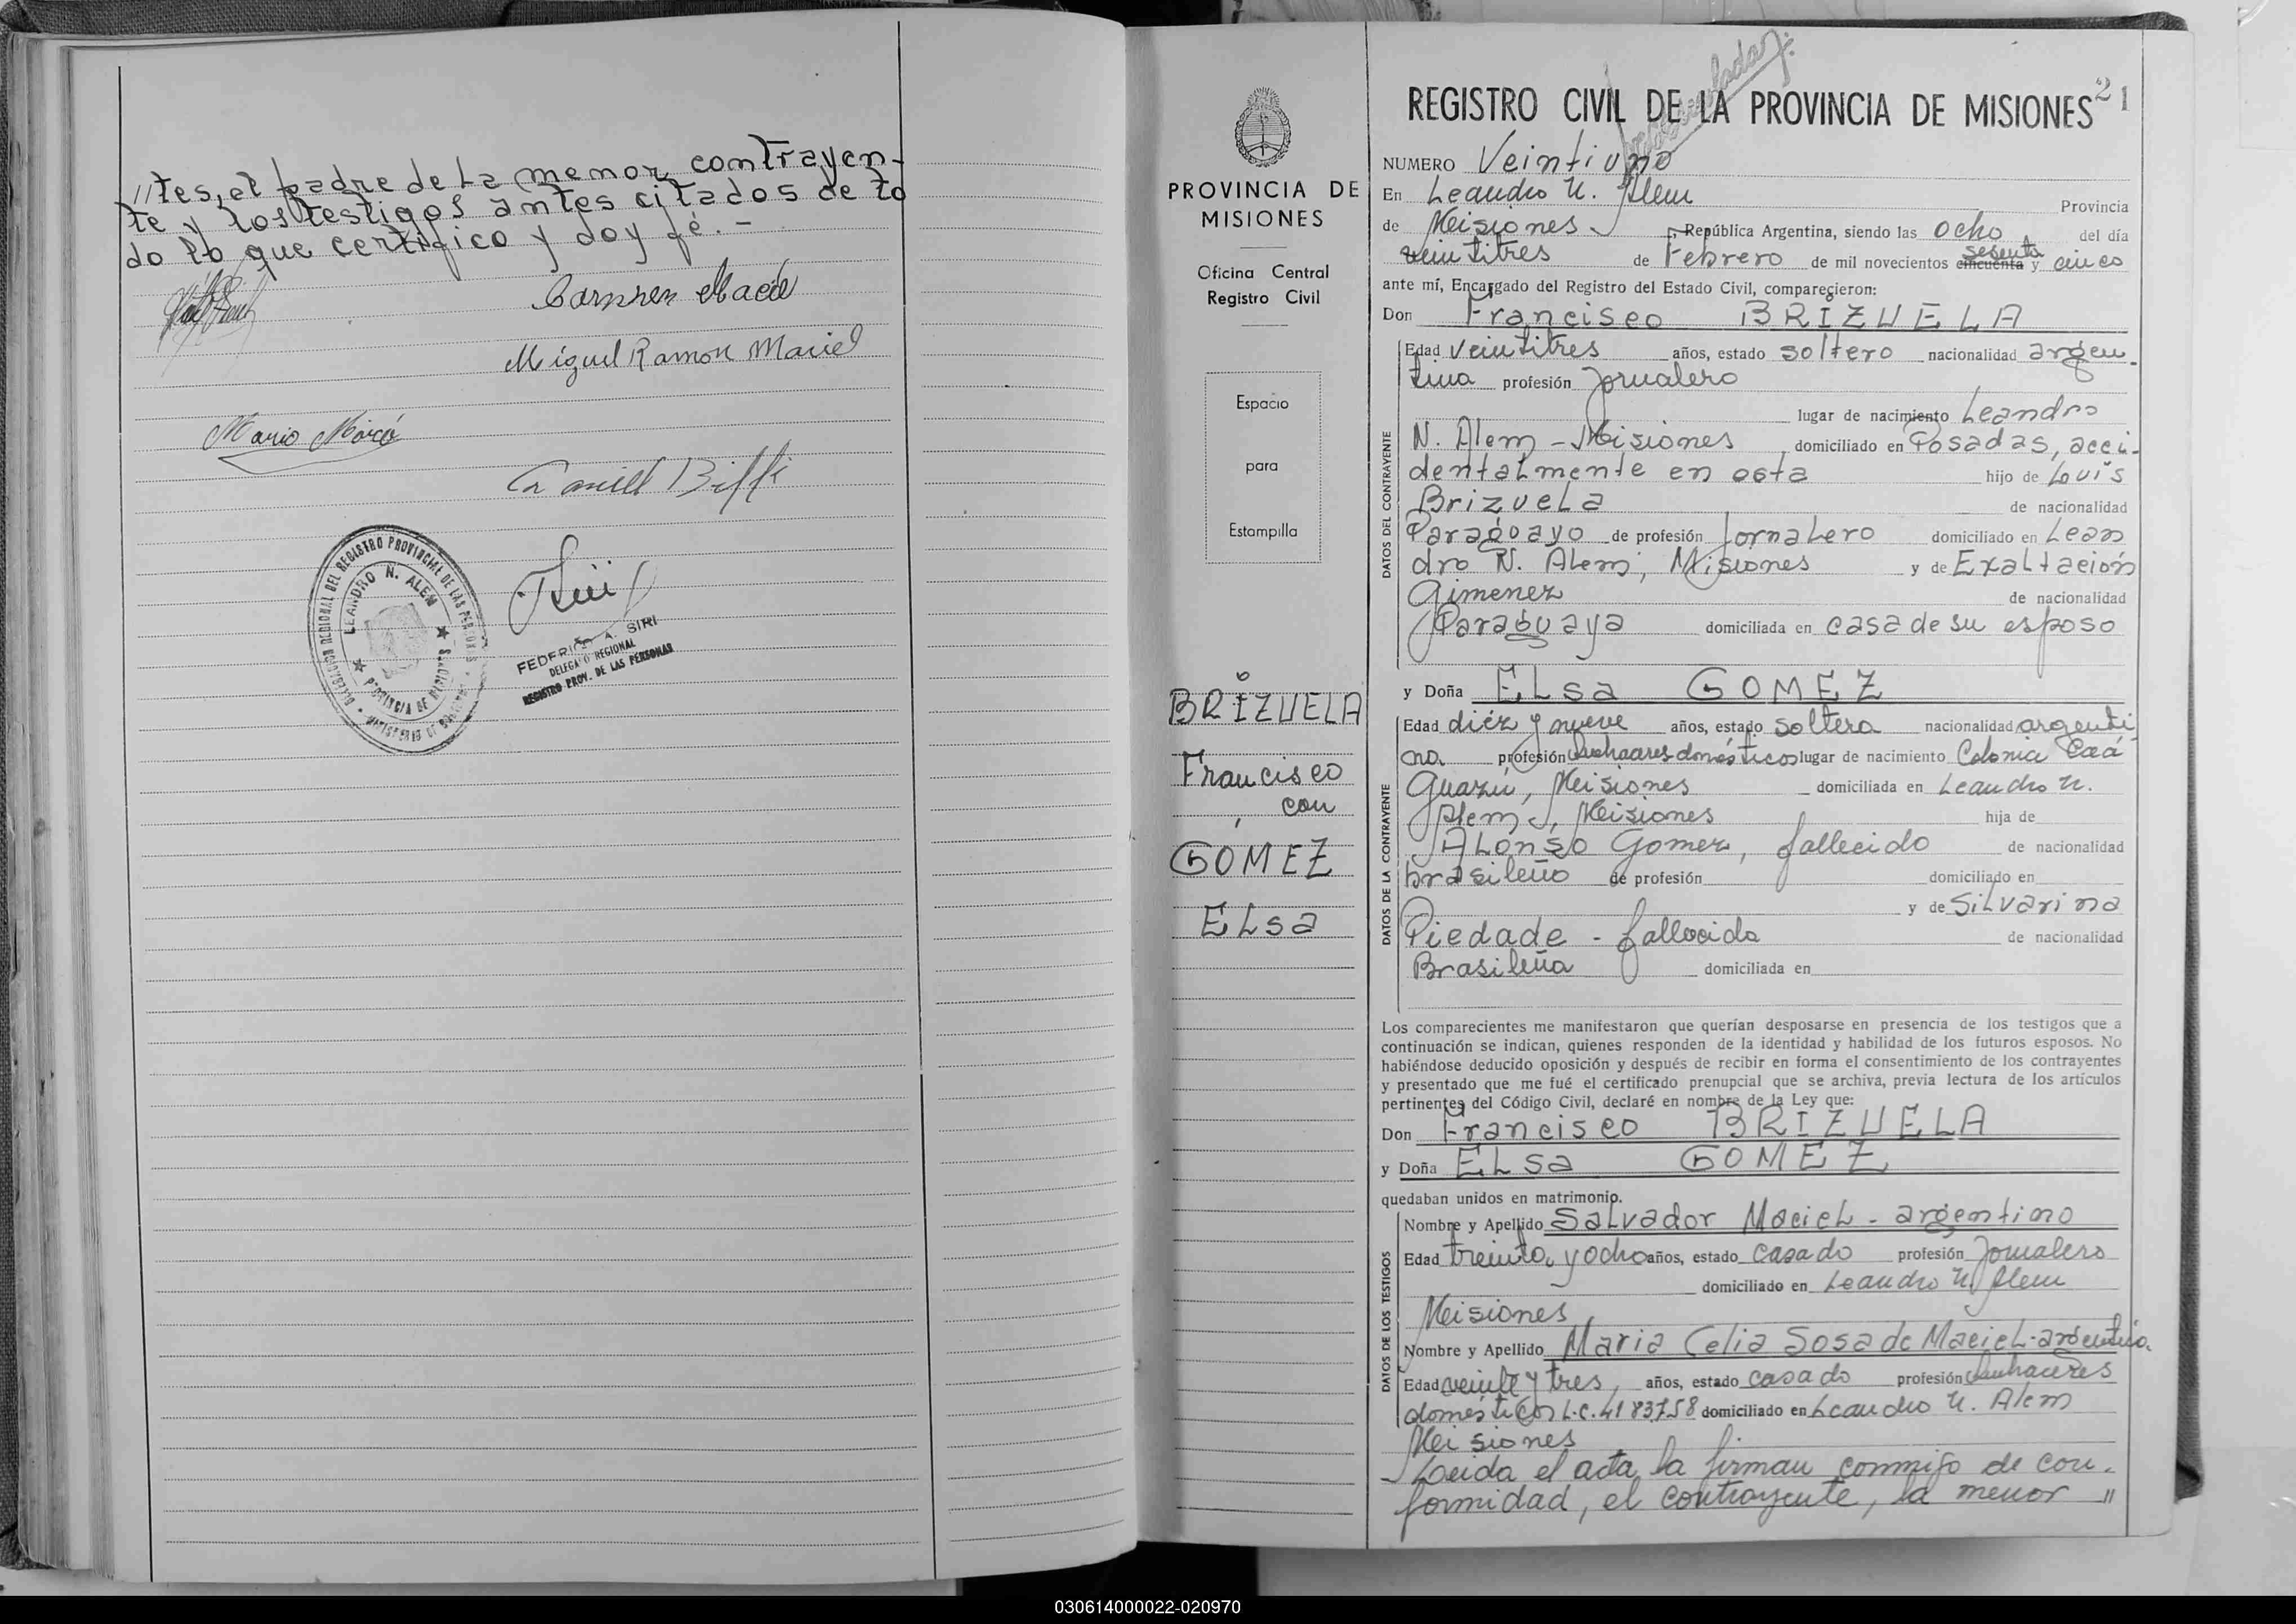 //tes, el padre de la menor contrayen-
te y los testigos antes citados de to
do lo que certifico y doy fé. -
Miguel Ramon Maciel
Mario
DELEGACION REGIONAL DEL REGISTRO PROVINCIAL DE LAS PERSONAS
LEANDRO N. ALEM
PROVINCIA DE MISIONES
FEDERICO A. SIRI
DELEGADO REGIONAL
REGISTRO PROV. DE LAS PERSONAS
PROVINCIA DE
MISIONES
Oficina Central
Registro Civil
Espacio
para
Estampilla
BRIZUELA
Francisco
con
GOMEZ
ELsa
21
REGISTRO CIVIL DE LA PROVINCIA DE MISIONES
NUMERO Veintiuno
En Leandro N. Alem Provincia
de Misiones, República Argentina, siendo las ocho del día
veintitres de Febrero de mil novecientos cincuenta sesenta y cinco
ante mí, Encargado del Registro del Estado Civil, comparecieron:
Don Francisco BRIZUELA
DATOS DEL CONTRAYENTE
Edad veintitres años, estado soltero nacionalidad argen-
tina profesión Jornalero
lugar de nacimiento Leandro
N. Alem - Misiones domiciliado en Posadas, acci-
dentalmente en esta hijo de Louis
Brizuela de nacionalidad
Paraguayo de profesión Jornalero domiciliado en Lean
dro N. Alem, Misiones y de Exaltación
Gimenez de nacionalidad
Paraguaya domiciliada en casa de su esposo
y Doña ELsa GOMEZ
DATOS DE LA CONTRAYENTE
Edad diéz y nueve años, estado soltera nacionalidad argenti
na profesión quehaceres domésticos lugar de nacimiento Colonia Caá
Guazú, Misiones domiciliada en Leandro N.
Alem, Misiones hija de
ALonso Gomez, fallecido de nacionalidad
brasileño de profesión domiciliado en
y de Silvarina
Piedade - fallecida de nacionalidad
Brasileña domiciliada en
Los comparecientes me manifestaron que querían desposarse en presencia de los testigos que a
continuación se indican, quienes responden de la identidad y habilidad de los futuros esposos. No
habiéndose deducido oposición y después de recibir en forma el consentimiento de los contrayentes
y presentado que me fué el certificado prenupcial que se archiva, previa lectura de los artículos
pertinentes del Código Civil, declaré en nombre de la Ley que:
Don Francisco BRIZUELA
y Doña ELsa GOMEZ
quedaban unidos en matrimonio.
DATOS DE LOS TESTIGOS
Nombre y Apellido Salvador Maciel - argentino
Edad treinta y ocho años, estado casado profesión Jornalero
domiciliado en Leandro N. Alem
Misiones
Nombre y Apellido Maria Celia Sosa de Maciel - argentina
Edad veinte y tres, años, estado casado profesión quehaceres
domésticos L.C. 4183758 domiciliado en Leandro N. Alem
Misiones
Leida el acta la firman conmigo de con-
formidad, el contrayente, la menor //
030614000022-020970